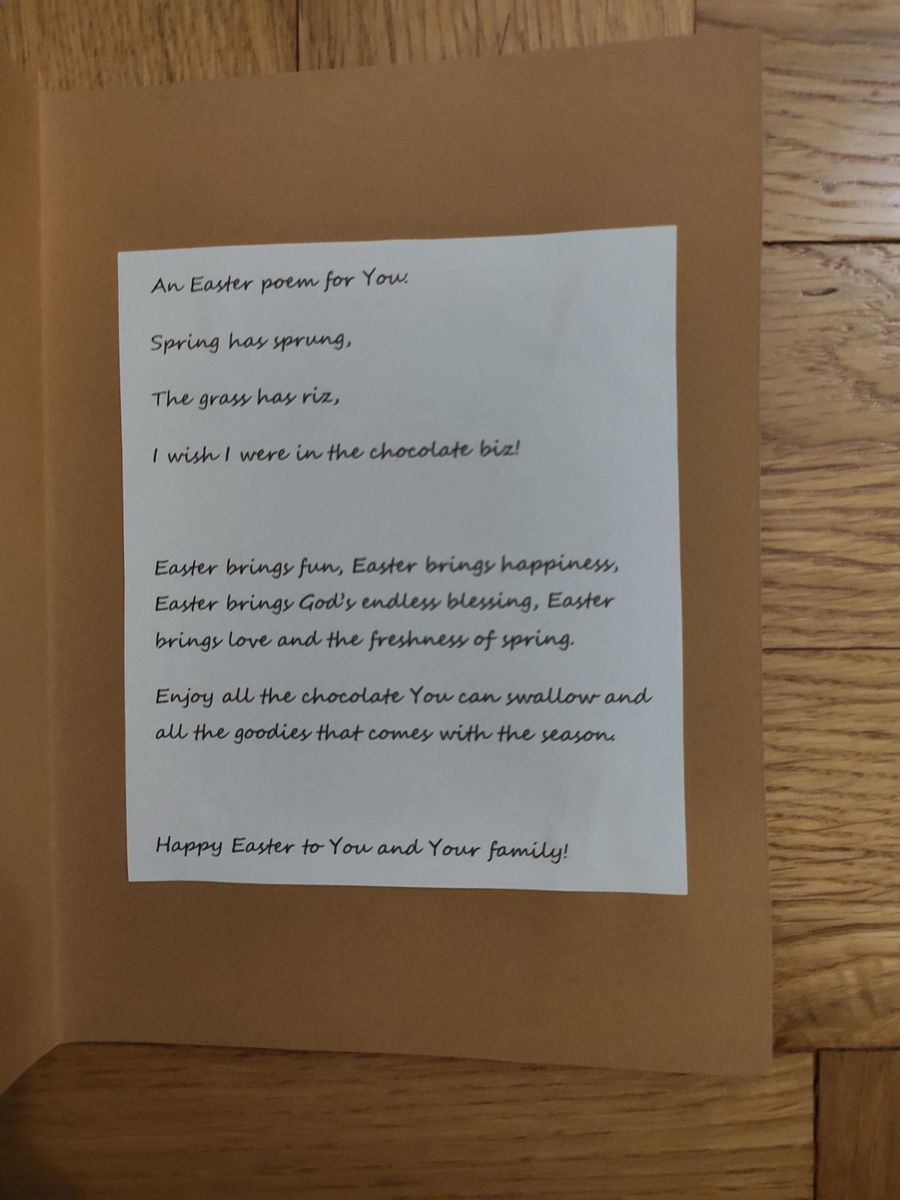 An Easter poem for You.
Spring has sprung,
The grass has riz,
I wish I were in the chocolate biz!
Easter brings fun, Easter brings happiness,
Easter brings God's endless blessing, Easter
brings love and the freshness of spring.
Enjoy all the chocolate You can swallow and
all the goodies that comes with the season.
Happy Easter to You and Your family!